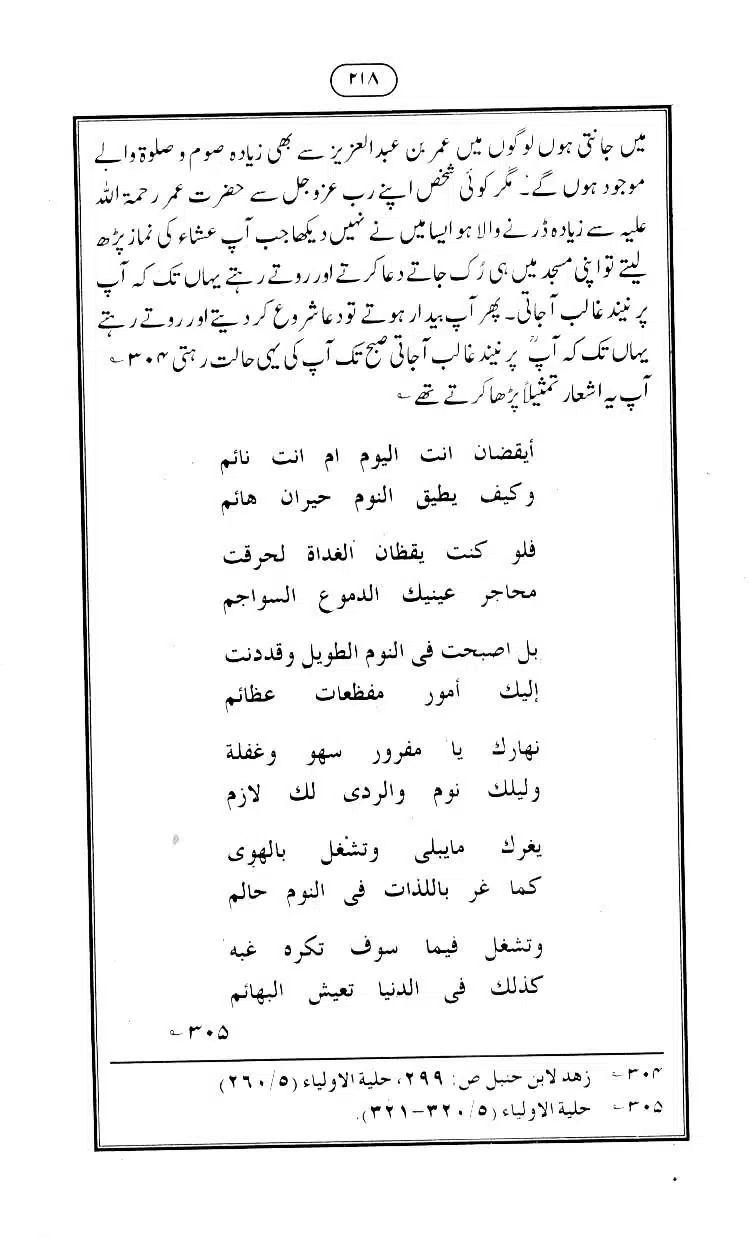 ۲۱۸
میں جانتی ہوں لوگوں میں عمر بن عبدالعزیز سے بھی زیادہ صوم و صلوۃ والے
موجود ہوں گے۔ مگر کوئی شخص اپنے رب عزوجل سے حضرت عمر رحمۃ اللہ
علیہ سے زیادہ ڈرنے والا ہو ایسا میں نے نہیں دیکھا جب آپ عشاء کی نماز پڑھ
لیتے تو اپنی مسجد میں ہی رُک جاتے دعا کرتے اور روتے رہتے یہاں تک کہ آپ
پر نیند غالب آجاتی۔ پھر آپ بیدار ہوتے تو دعا شروع کر دیتے اور روتے رہتے
یہاں تک کہ آپؒ پر نیند غالب آجاتی صبح تک آپ کی یہی حالت رہتی ۳۰۴؎
آپ یہ اشعار تمثیلاً پڑھا کرتے تھے ؎
أيقضان انت اليوم ام انت نائم
وكيف يطيق النوم حيران هائم
فلو كنت يقظان الغداة لحرقت
محاجر عينيك الدموع السواجم
بل اصبحت فى النوم الطويل وقددنت
إليك أمور مفظعات عظائم
نهارك يا مفرور سهو وغفلة
وليلك نوم والردى لك لازم
يغرك مايبلى وتشغل بالهوى
كما غر باللذات فى النوم حالم
وتشغل فيما سوف تكره غبه
كذلك فى الدنيا تعيش البهائم
۳۰۵؎
۳۰۴؎ زهد لابن حنبل ص: ۲۹۹، حلية الاولياء (۲٦۰/۵)
۳۰۵؎ حلية الاولياء (۳۲۱-۳۲۰/۵).